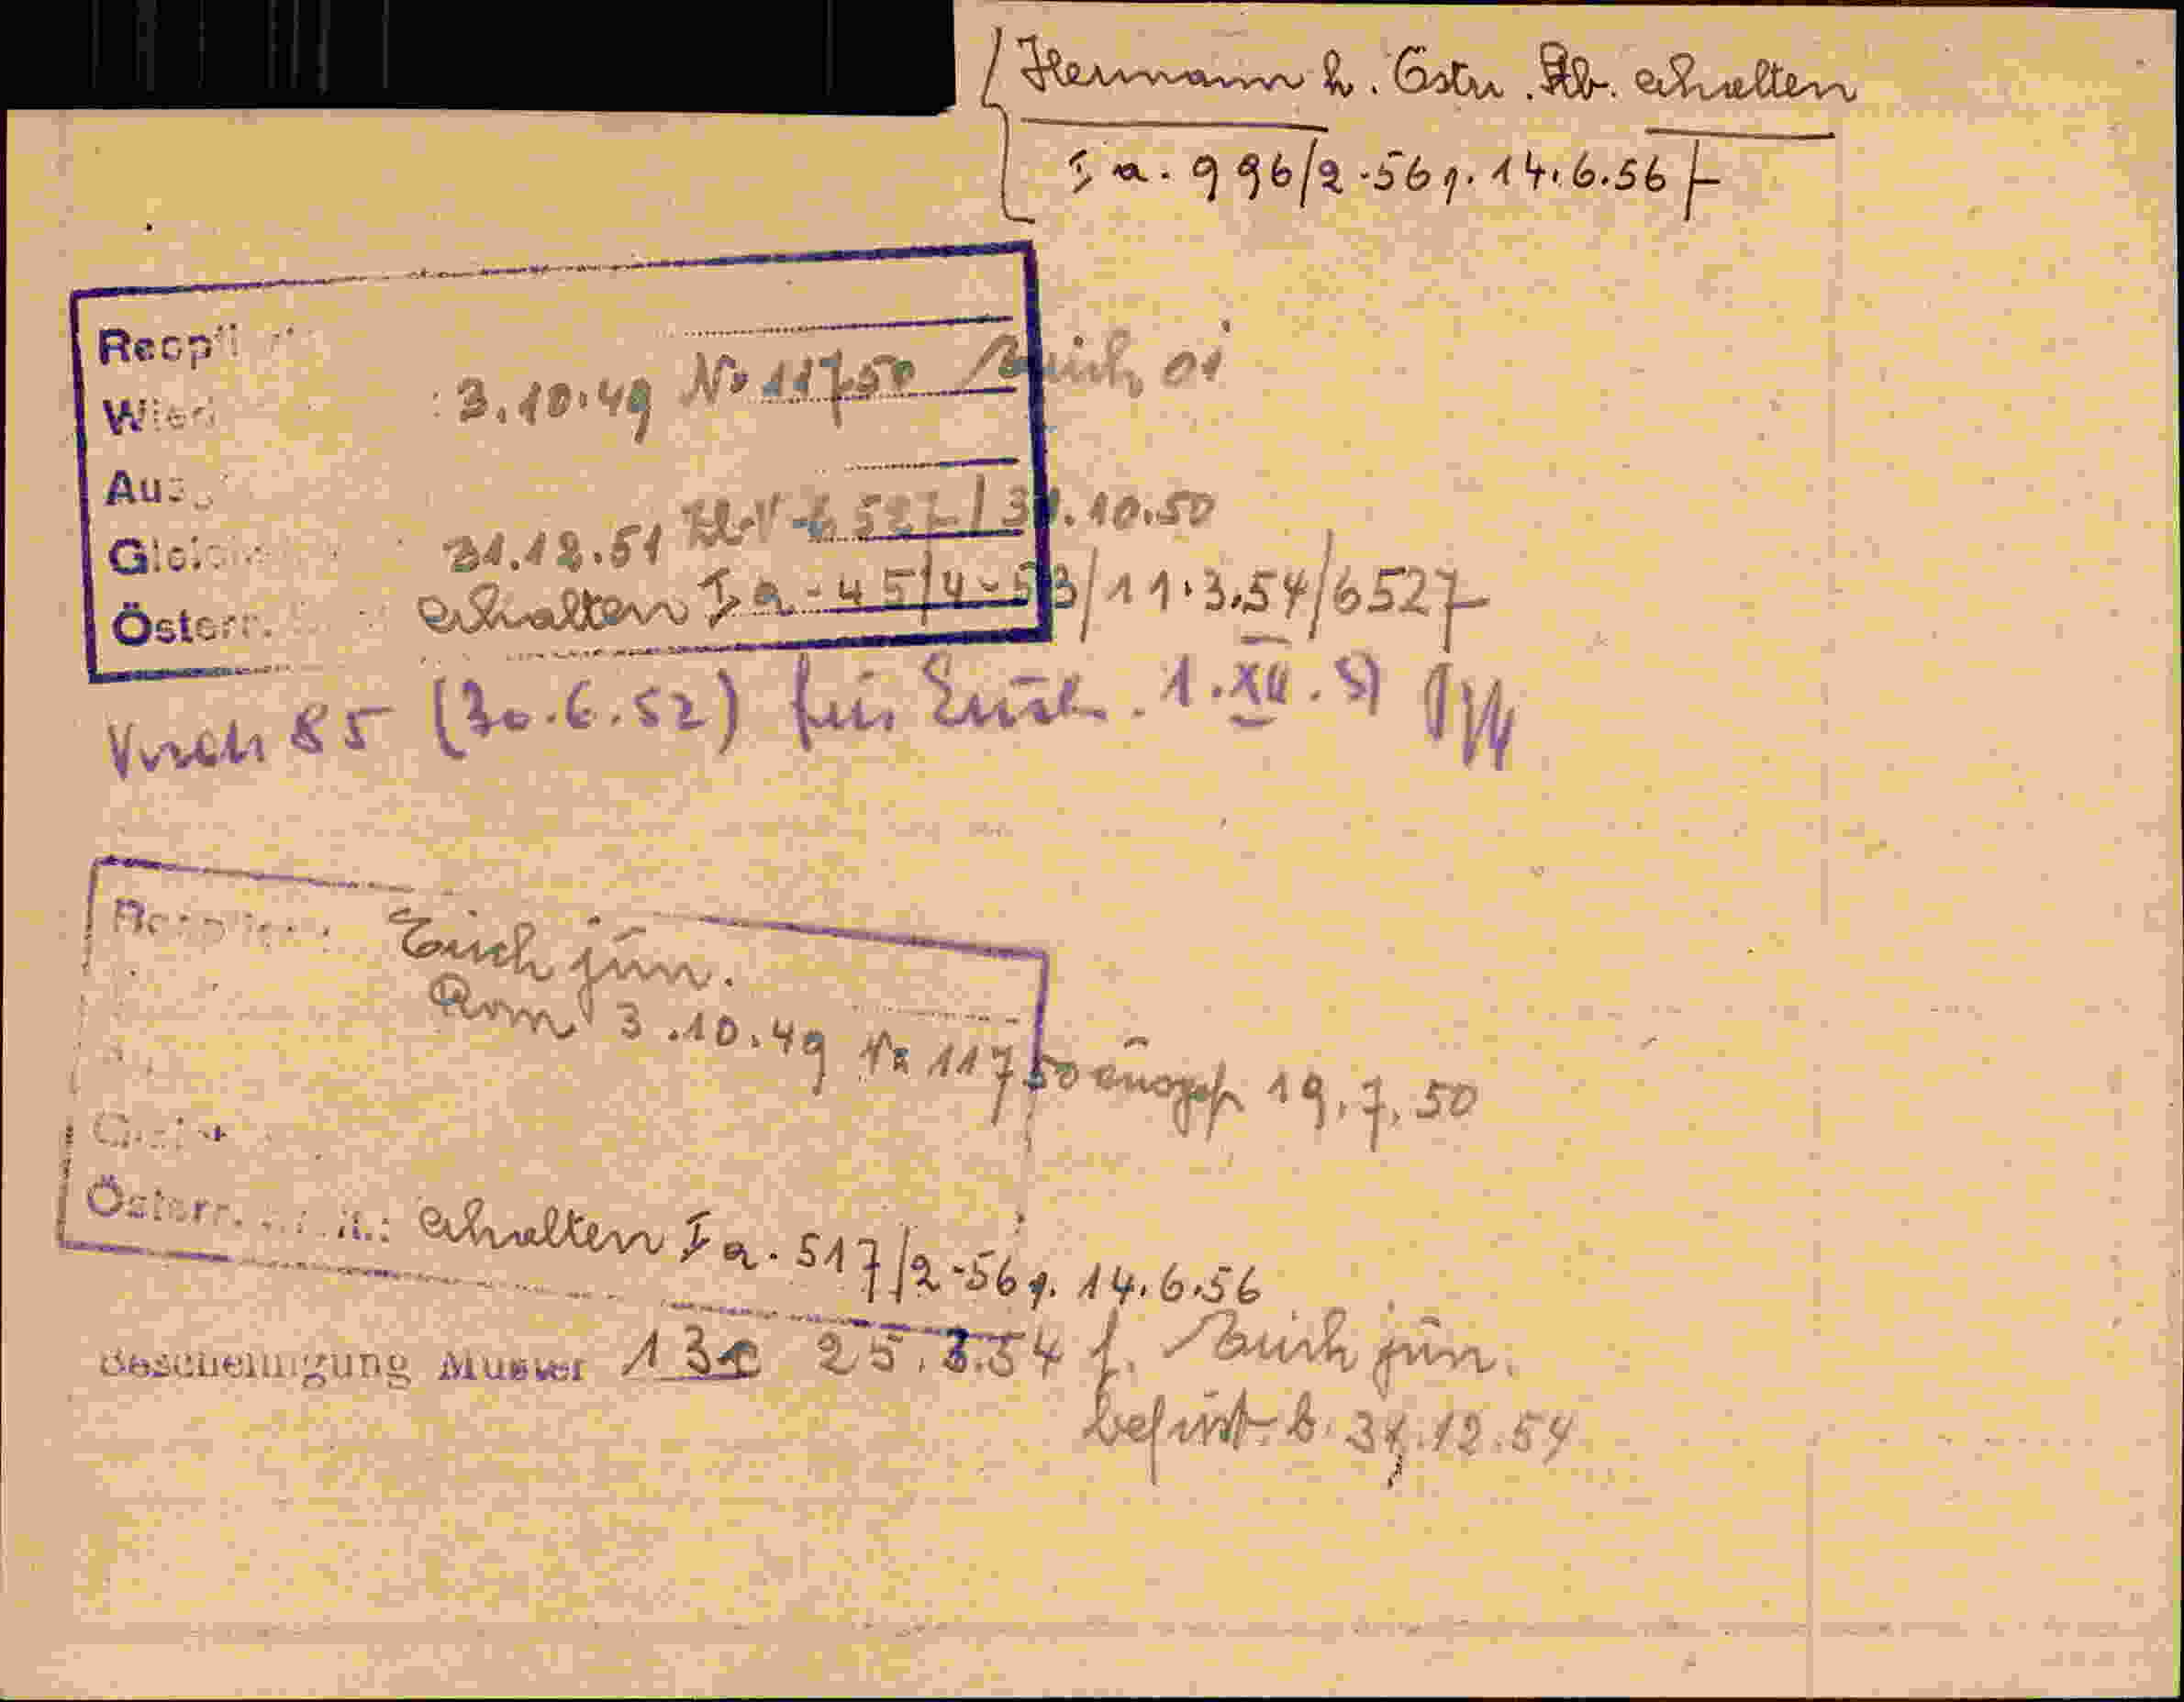 Hermann h. Östr. Stb. erhalten
I a. 996/2-56 v. 14.6.56
Wien
3.10.49 Nr 11750 Erich
31.12.51 Zl. V-6527/31.10.50
Österr. erhalten I a-45/4-53/11.3.54/6527
85 (30.6.52) für Erich. 1.XII.51
Erich jun.
Rom 3.10.49 Nr 11750 ausgef 19.7.50
Österr. erhalten I a. 517/2-56 v. 14.6.56
Bescheinigung Muster 13c 25.3.54 f. Erich jun.
befrist. b. 31.12.54